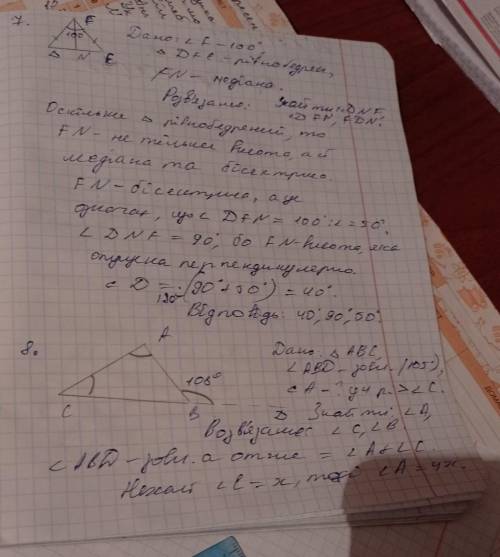 7.
F
100°
D N E
Дано: ∠F-100°.
△ DFE - рівнобедрен,
FN - медіана.
Знайти: ∠DNF
∠DFN, FDN.
Розв'язання:
Оскільки △ рівнобедрений, то
FN - не тільки висота, а й
медіана та бісектриса.
FN - бісектриса, а це
означає, що ∠DFN = 100°:2=50°.
∠DNF = 90°, бо FN-висота, яка
опущена перпендикулярно.
∠D = 180°-(90°+50°) = 40°.
Відповідь: 40°, 90°, 50°
8.
A
105°
C B D
Дано: △ ABC,
∠ABD - зовн. (105°),
∠A - ? у 4 р. > ∠C.
Знайти: ∠A,
∠C, ∠B
Розв'язання:
∠ABD - зовн. а отже = ∠A+∠C.
Нехай ∠C = x, тоді ∠A = 4x.